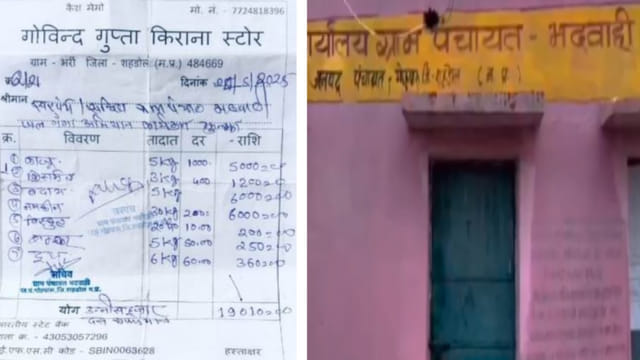 कैश मेमो
मो. नं. - 7724818396
गोविन्द गुप्ता किराना स्टोर
ग्राम - भर्री जिला - शहडोल (म.प्र.) 484669
दिनांक
श्रीमान
जल गंगा
क्र. विवरण तादात दर राशि
① काजू 5 kg 1000 5000=00
② किसमिस 3 kg 400 1200=00
③ बादाम 5 kg 6000=00
④ नमकीन 30 kg 200 6000=00
⑤ बिस्कुट 20 10.00 200=00
⑥ 5 kg 50.00 250=00
⑦ 6 kg 60.00 360=00
सरपंच
सचिव
ग्राम पंचायत भदवाही
योग 19010=00
भारतीय स्टेट बैंक
खाता क्र. - 43053057296
ई.एफ.एस.सी कोड - SBIN0063628 हस्ताक्षर
कार्यालय ग्राम पंचायत - भदवाही
जनपद पंचायत, (म.प्र.)